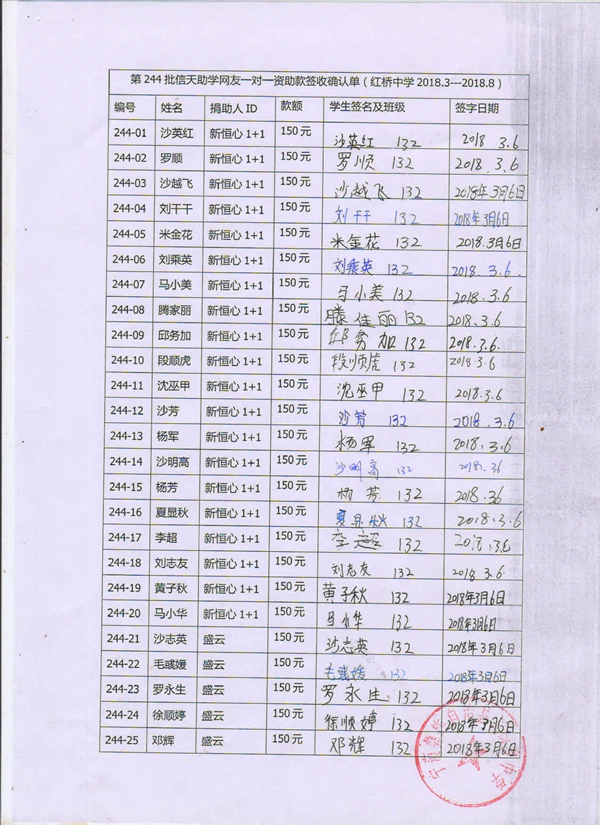 第244批信天助学网友一对一资助款签收确认单（红桥中学2018.3---2018.8）
编号 姓名 捐助人ID 款额 学生签名及班级 签字日期
244-01 沙英红 新恒心1+1 150元 沙英红 132 2018 3.6
244-02 罗顺 新恒心1+1 150元 罗顺 132 2018.3.6
244-03 沙越飞 新恒心1+1 150元 沙越飞 132 2018年3月6日
244-04 刘干干 新恒心1+1 150元 刘干干 132 2018年3月6日
244-05 米金花 新恒心1+1 150元 米金花 132 2018.3月6日
244-06 刘乘英 新恒心1+1 150元 刘乘英 132 2018.3.6.
244-07 马小美 新恒心1+1 150元 马小美 132 2018.3.6
244-08 腾家丽 新恒心1+1 150元 滕佳丽 132 2018.3.6
244-09 邱务加 新恒心1+1 150元 邱务加 132 2018.3.6.
244-10 段顺虎 新恒心1+1 150元 段顺虎 132 2018.3.6
244-11 沈巫甲 新恒心1+1 150元 沈巫甲 132 2018.3.6
244-12 沙芳 新恒心1+1 150元 沙芳 132 2018.3.6
244-13 杨军 新恒心1+1 150元 杨军 132 2018.3.6
244-14 沙明高 新恒心1+1 150元 沙明高 132 2018.36
244-15 杨芳 新恒心1+1 150元 杨芳 132 2018.36
244-16 夏显秋 新恒心1+1 150元 夏显秋 132 2018.3.6
244-17 李超 新恒心1+1 150元 李超 132 2018.3.6
244-18 刘志友 新恒心1+1 150元 刘志友 132 2018 3.6
244-19 黄子秋 新恒心1+1 150元 黄子秋 132 2018年3月6日
244-20 马小华 新恒心1+1 150元 马小华 132 2018年3月6日
244-21 沙志英 盛云 150元 沙志英 132 2018年3月6日
244-22 毛彧媛 盛云 150元 毛彧媛 132 2018年3月6日
244-23 罗永生 盛云 150元 罗永生 132 2018年3月6日
244-24 徐顺婷 盛云 150元 徐顺婷 132 2018年3月6日
244-25 邓辉 盛云 150元 邓辉 132 2018年3月6日